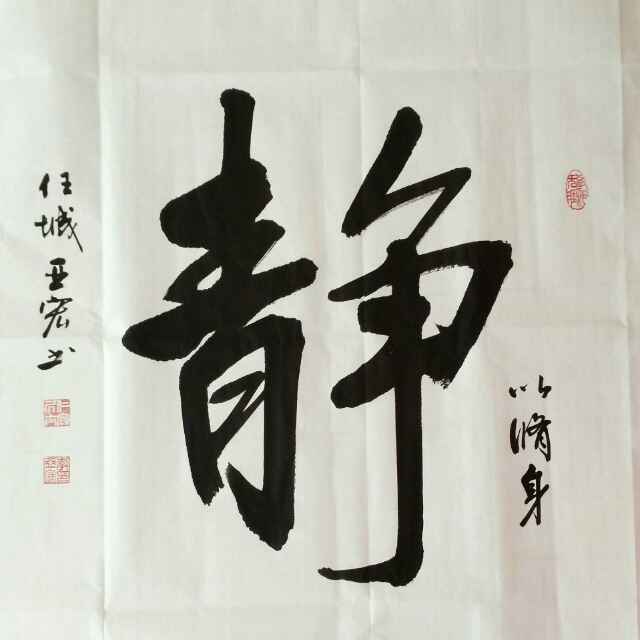 静
以脩身
任城亚宏书